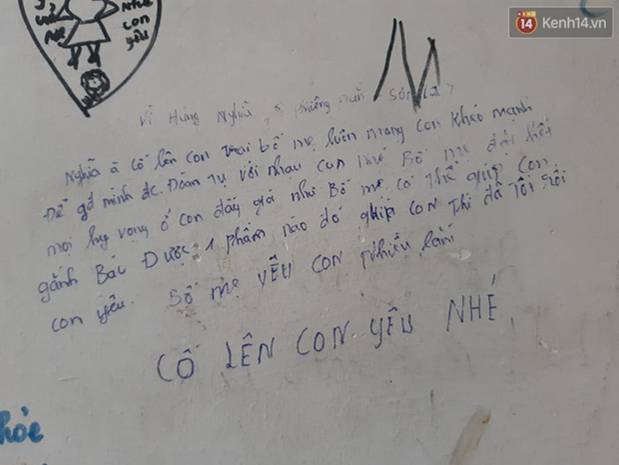 14 Kenh14.vn
nhé
con
yêu
Vì Hưng Nghĩa
Nghĩa à cố lên con trai bố mẹ luôn mong con khỏe mạnh
Để gđ mình đc Đoàn tụ với nhau con nhé Bố mẹ đặt hết
mọi hy vọng ở con đấy giá như Bố mẹ có thể giúp con
gánh Bác Được 1 phần nào đó giúp con thì đã tốt rồi
con yêu. Bố mẹ YÊU CON nhiều lắm
CỐ LÊN CON YÊU NHÉ
hỏe